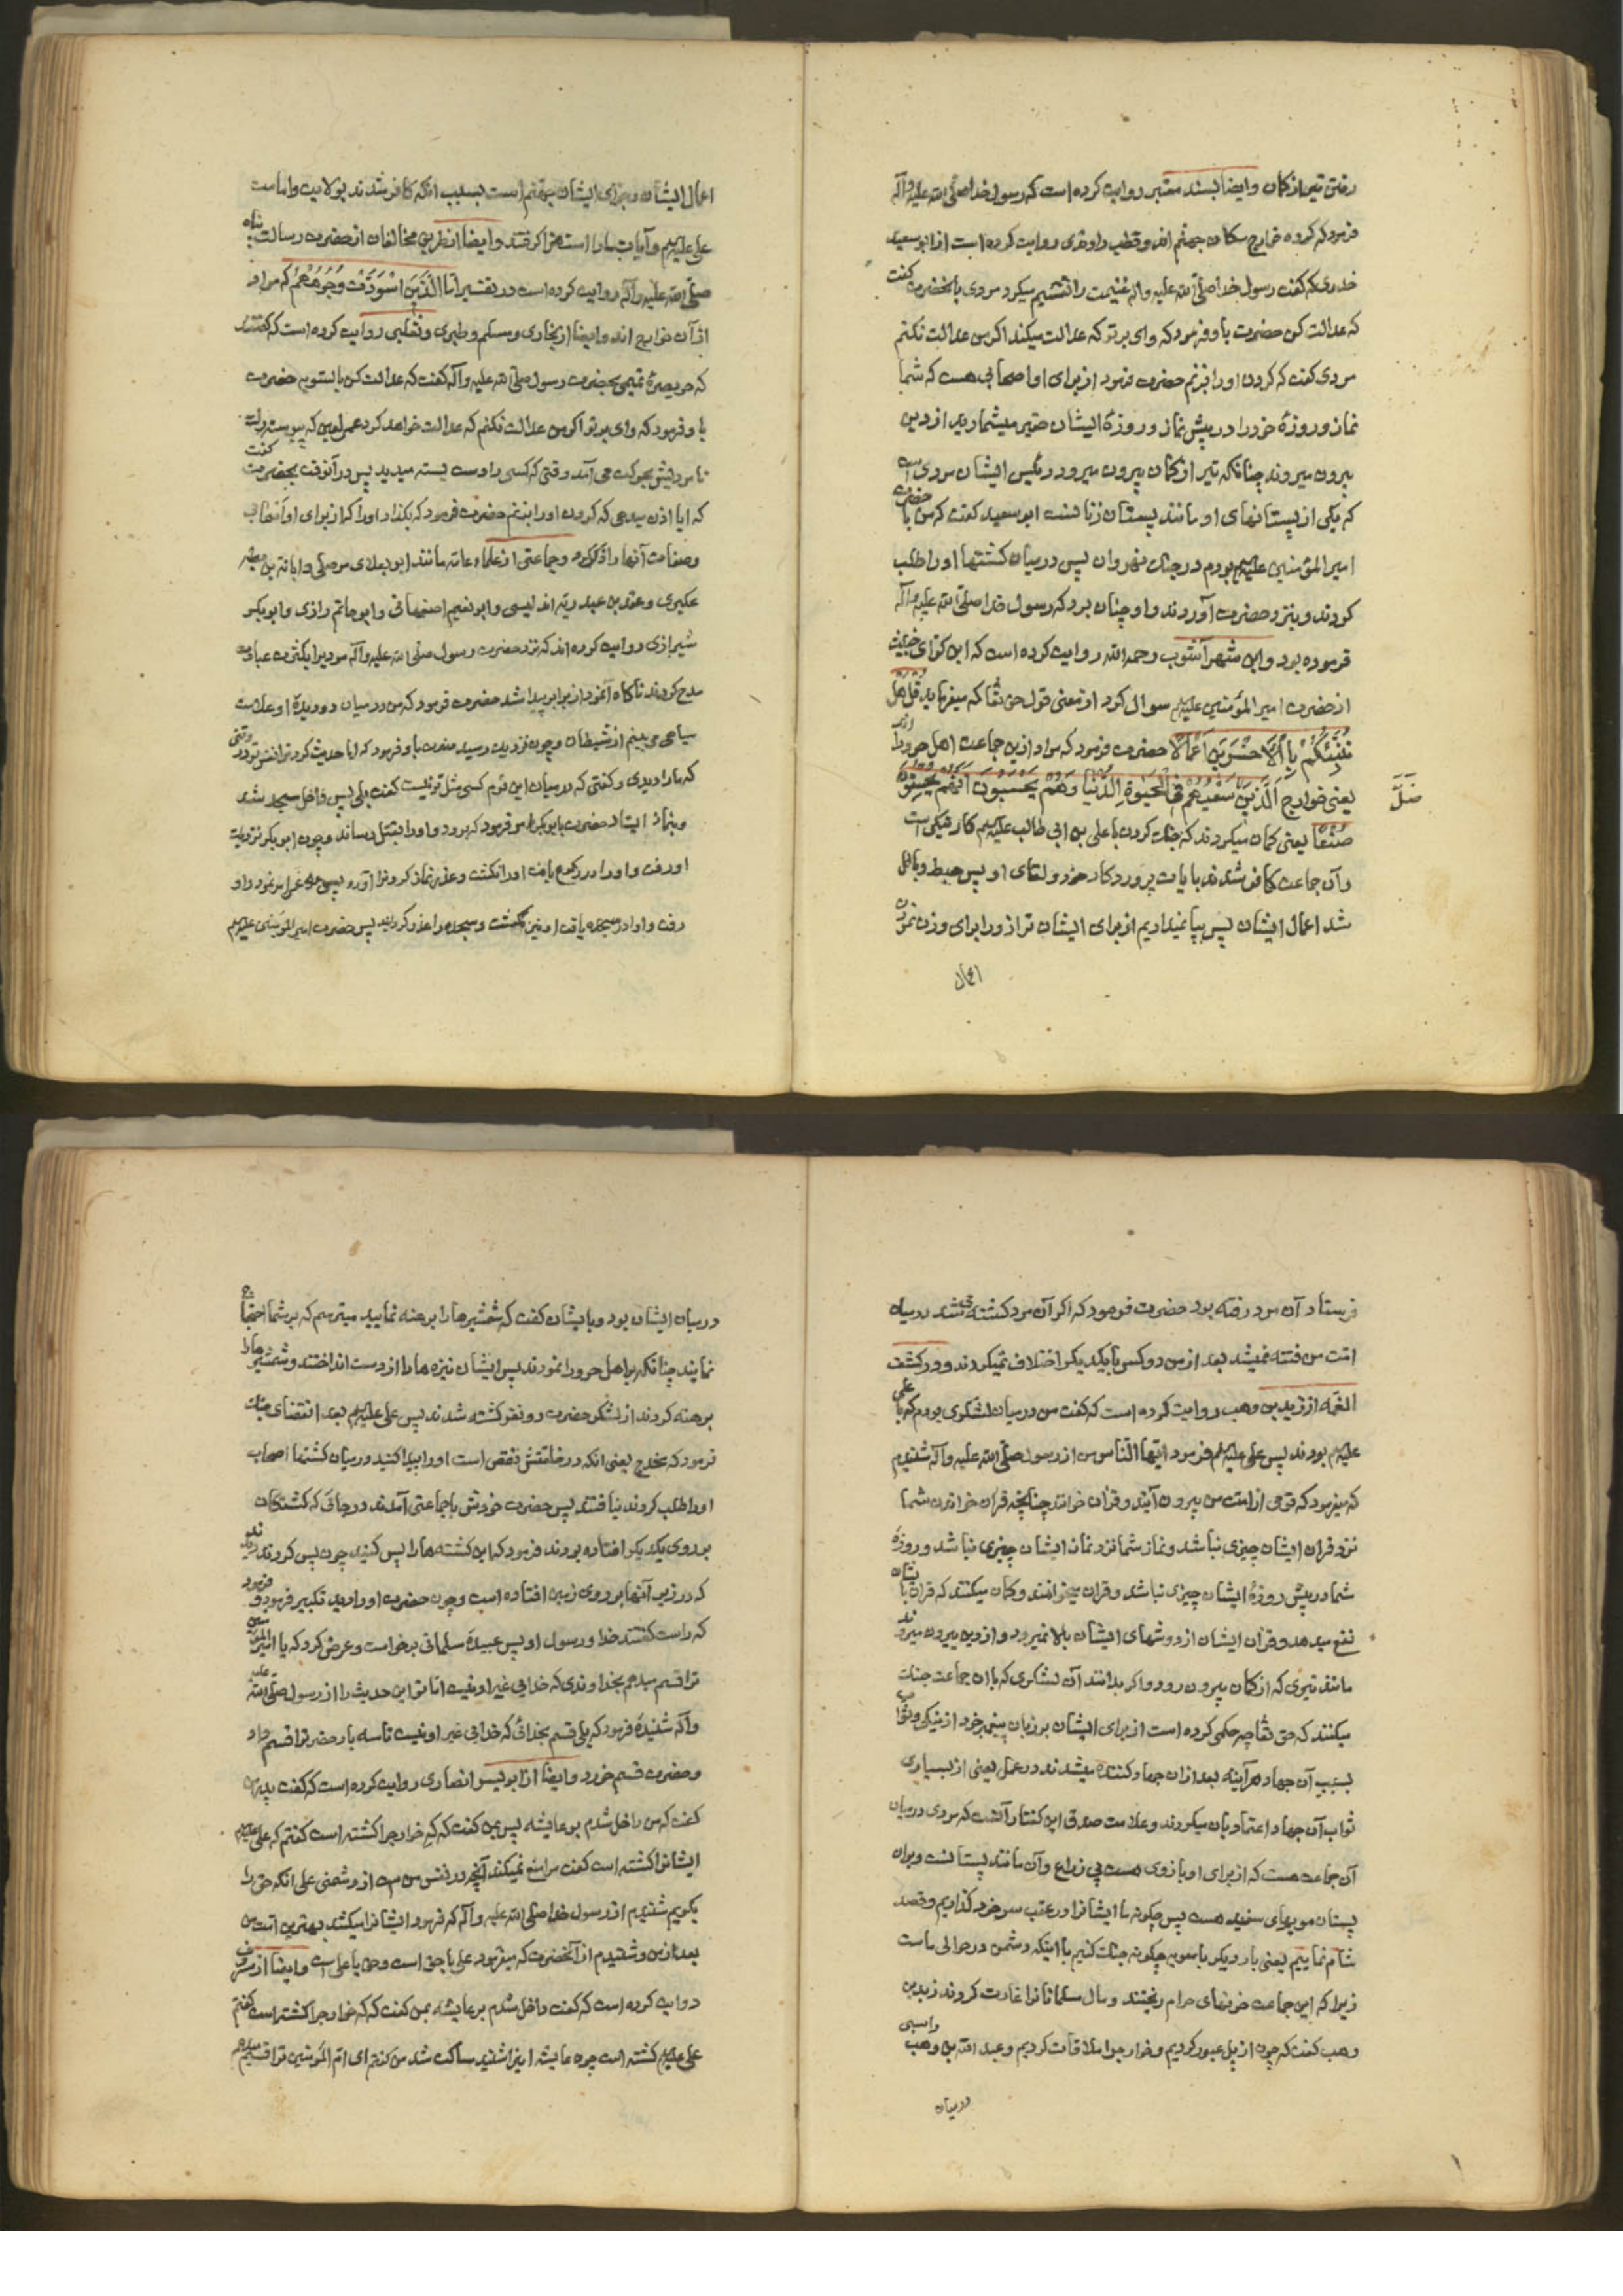 رفتن تیر از کمان وایضا بسند معتبر روایت کرده است که رسول خدا صلی الله علیه وآله
فرمود که کروه خوارج سکان جهنم اند وقطب راوندی روایت کرده است از ابو سعید
خدری که کفت رسول خدا صلی الله علیه واله غنیمت را تقسیم میکرد مردی بانحضرت کفت
که عدالت کن حضرت باو فرمود که وای بر تو که عدالت میکند اکر من عدالت نکنم
مردی کفت که کردن او را بزنم حضرت فرمود از برای او اصحابی هست که شما
نماز وروزهٔ خود را در پیش نماز وروزهٔ ایشان حقیر میشمارید از دین
بیرون میروند چنانکه تیر از کمان بیرون میرود رئیس ایشان مردی است
که یکی از پستانهای او مانند پستان زنانست ابو سعید کفت که من با حضرت
امیر المؤمنین علیهم بودم در جنک نهروان پس در میان کشتها او را طلب
کردند وبنزد حضرت آوردند واو چنان بود که رسول خدا صلی الله علیه وآله
فرموده بود وابن شهر آشوب رحمه الله روایت کرده است که ابن کوای خبیث
از حضرت امیر المؤمنین علیهم سوال کرد از معنی قول حق تقا که میفرماید قل هل
ننبئکم بالاخسرین اعمالا حضرت فرمود که مراد ازین جماعت اهل حرورا اند
یعنی خوارج الذین سعیهم فی الحیوة الدنیا وهم یحسبون انهم یحسنون
ضل
صنعا یعنی کمان میکردند که جنک کردن با علی بن ابی طالب علیهم کار نیکی است
وآن جماعت کافر شدند بایات پروردکار خود ولقای او پس حبط وباطل
شد اعمال ایشان پس بپا نمیداریم از برای ایشان ترازو را برای وزن کردن
اعمال
اعمال ایشان وجزای ایشان جهنم است بسبب آنکه کافر شدند بولایت وامامت
علی علیهم وآیات مارا استهزا کرفتند وایضا از طریق مخالفان از حضرت رسالت پناه
صلی الله علیه وآله روایت کرده است در تفسیر اما الذین اسودت وجوههم که مراد
از آن خوارج اند وایضا از بخاری ومسلم وطبری وثعلبی روایت کرده است که کفتند
که حویصرهٔ تمیمی بحضرت رسول صلی الله علیه وآله کفت که عدالت کن بالسویه حضرت
باو فرمود که وای بر تو اکر من عدالت نکنم که عدالت خواهد کرد عمر لعین که پیوسته
که آیا اذن میدهی که کردن او را بزنم حضرت فرمود که بکذار او را که از برای او اصحاب
وصفات آنها را ذکر کرد وجماعتی از علماء عامه مانند ابو یعلای موصلی وابانة بن بطه
عکبری وعقد بن عبد ربه اندلسی وابو نعیم اصفهانی وابو حاتم رازی وابو بکر
شیرازی روایت کرده اند که نزد حضرت رسول صلی الله علیه وآله مردیرا بکثرت عبادت
مدح کردند ناکاه آنمرد از برابر پیدا شد حضرت فرمود که من در میان دو دیدهٔ او علامت
سیاهی می بینم از شیطان وچون نزدیک رسید حضرت باو فرمود که ایا حدیث کرد ترا نفس تو در وقتی
که مارا دیدی وکفتی که در میان این قوم کسی مثل تو نیست کفت بلی پس داخل مسجد شد
وبنماز ایستاد حضرت بابو بکر فرمود که برو واو را بقتل رساند وچون ابو بکر نزدیک
او رفت واو را در رکوع یافت او را نکشت وعذر نماز کردن او را آورد پس عمر را امر نمود واو
رفت واو را در سجده یافت او نیز نکشت وسجده را عذر کردانید پس حضرت امیر المؤمنین علیهم
فرستاد آن مرد رفته بود حضرت فرمود که اکر آن مرد کشته می شد در میان
امت من فتنه نمیشد بعد از من دو کس با یکدیکر اختلاف نمیکردند ودر کشف
الغمه از زید بن وهب روایت کرده است که کفت من در میان لشکری بودم که با علی
علیهم بودند پس علی علیهم فرمود ایها الناس من از رسول صلی الله علیه وآله شنیدم
که میفرمود که قومی از امت من بیرون آیند وقران خوانند چنانچه قران خواندن شما
نزد قران ایشان چیزی نباشد ونماز شما نزد نماز ایشان چیزی نباشد وروزهٔ
شما در پیش روزهٔ ایشان چیزی نباشد وقران میخوانند وکمان میکنند که قران بایشان
نفع میدهد وقرآن ایشان از دوشهای ایشان بالا نمیرود واز دین بیرون میروند
مانند تیری که از کمان بیرون رود واکر بدانند آن لشکری که با ان جماعت جنک
میکنند که حق تقا چه حکمی کرده است از برای ایشان بر زبان پیغمبر خود از نیکی وثواب
بسبب آن جهاد هر آینه بعد از ان جهاد کننده میشدند در عمل یعنی از بسیاری
ثواب آن جهاد اعتماد بان میکردند وعلامت صدق این کفتار آنست که مردی در میان
آن جماعت هست که از برای او بازوی هست بی زراع وآن مانند پستانست وبران
پستان مویهای سفید هست پس چکونه ما ایشانرا در عقب سر خود کذاریم وقصد
شام نماییم یعنی بار دیکر با معویه چکونه جنک کنیم با اینکه دشمن در حوالی ماست
زیرا که این جماعت خونهای حرام ریختند ومال مسلمانانرا غارت کردند زید بن
وهب کفت که چون از پل عبور کردیم وخوارجرا ملاقات کردیم وعبد الله بن وهب راسبی
درمیان
در میان ایشان بود وبایشان کفت که شمشیرها را برهنه نمایید میترسم که بر شما احتجاج
نمایند چنانکه براهل حرورا نمودند پس ایشان نیزه ها را از دست انداختند وشمشیر ها را
برهنه کردند از لشکر حضرت دو نفر کشته شدند پس علی علیهم بعد از انقضای جنک
فرمود که مخدج یعنی انکه در خلقتش نقص است او را پیدا کنید در میان کشتها اصحاب
او را طلب کردند نیافتند پس حضرت خودش با جماعتی آمدند در جائی که کشتکان
بر روی یکدیکر افتاده بودند فرمود که این کشته ها را پس کنید چون پس کردند دیدند
که در زیر آنها بر روی زمین افتاده است وچون حضرت او را دید تکبیر فرمود وفرمود
که راست کفتند خدا ورسول او پس عبیدهٔ سلمانی برخواست وعرض کرد که یا امیر المؤمنین
ترا قسم میدهم بخداوندی که خدایی غیر او نیست ایا تو این حدیث را از رسول صلی الله علیه
وآله شنیدهٔ فرمود که بلی قسم بخدائی که خدائی غیر او نیست تا سه بار حضرترا قسم داد
وحضرت قسم خورد وایضا از ابو لیس انصاری روایت کرده است که کفت پدرم
کفت که من داخل شدم بر عایشه پس بمن کفت که که خوارجرا کشته است کفتم که علی علیهم
ایشانرا کشته است کفت مرا منع نمیکند آنچه در نفس من هست از دشمنی علی انکه حق را
بکویم شنیدم از رسول خدا صلی الله علیه وآله که فرمود ایشانرا میکشد بهترین امت من
بعد از من وشنیدم از آنحضرت که میفرمود علی با حق است وحق با علی است وایضا از مسروق
روایت کرده است که کفت داخل شدم بر عایشه بمن کفت که که خوارجرا کشته است کفتم
علی علیهم کشته است چون عایشه اینرا شنید ساکت شد من کفتم ای ام المؤمنین ترا قسم میدهم